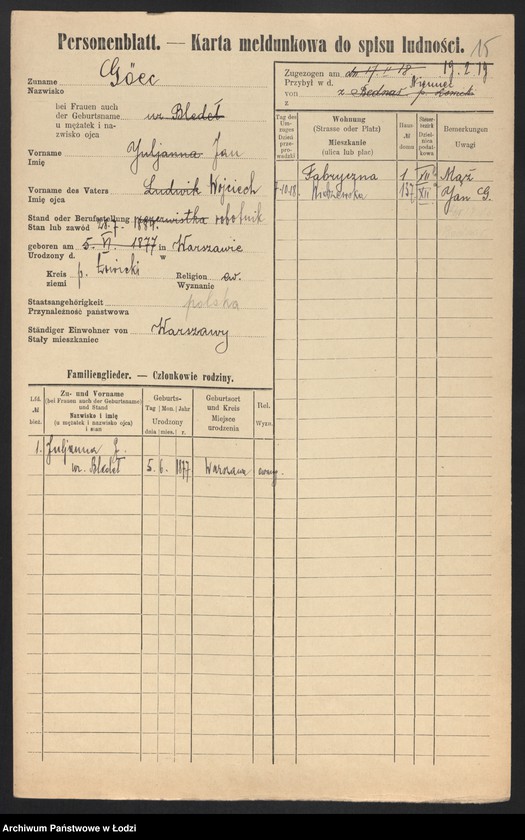 Personenblatt. — Karta meldunkowa do spisu ludności. 15
Zuname
Nazwisko
Göec
bei Frauen auch
der Geburtsname
u mężatek i na-
zwisko ojca
ur. Bledeł
Vorname
Imię
Juljanna Jan
Vorname des Vaters
Imię ojca
Ludwik Wojciech
Stand oder Berufsstellung
Stan lub zawód
robotnik
geboren am 5. VI. 1877 in Warszawie
Urodzony d. w
Kreis
ziemi
p. Łowicki
Religion
Wyznanie
ew.
Staatsangehörigkeit
Przynależność państwowa
polska
Ständiger Einwohner von
Stały mieszkaniec
Warszawy
Zugezogen am dn 17 II 18 19.2.19
Przybył w d. Niemiec
von z
z
Tag des
Um-
zuges
Dzień
prze-
prowadzki
Wohnung
(Strasse oder Platz)
Mieszkanie
(ulica lub plac)
Haus-
№
domu
Bemerkungen
Uwagi
Fabryczna 1 XII Mąż
7.10.18. 137 XII Jan G.
Familienglieder. — Członkowie rodziny.
Lfd.
№
bież.
Zu- und Vorname
(bei Frauen auch der Geburtsname)
und Stand
Nazwisko i imię
(u mężatek i nazwisko ojca)
i stan
Geburts-
Tag Mon. Jahr
Urodzony
dnia mies. r.
Geburtsort
und Kreis
Miejsce
urodzenia
Rel.
Wyzn.
1. Juljanna G.
ur. Bledeł 5. 6. 1877 Warszawa ewang.
Archiwum Państwowe w Łodzi